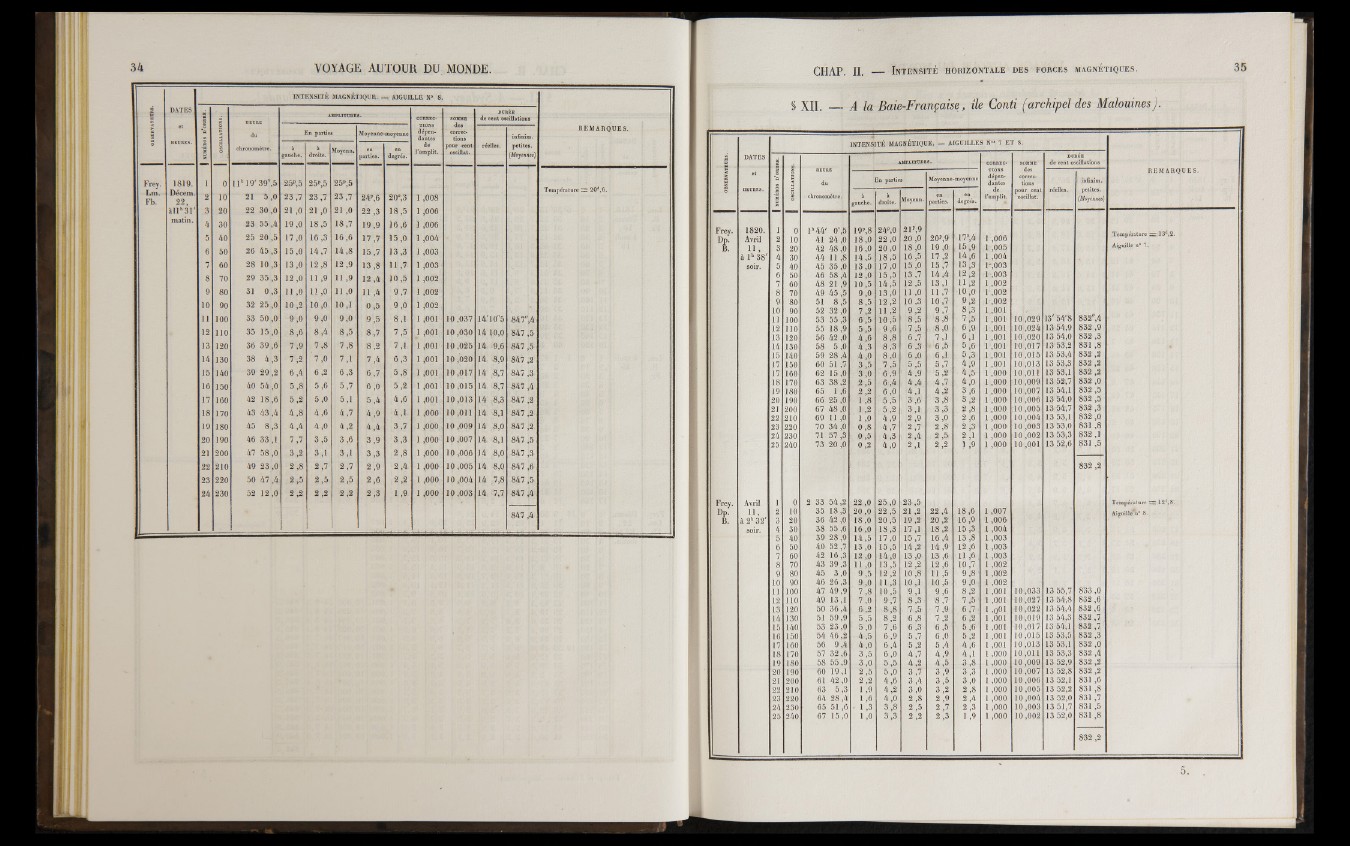 34 VOYAGE AUTOUR DU MONDE.
INTENSITÉ MAGNÉTIQUE. — AIGUILLE N° 8.
OBSERVATEURS. DATES et HEURES. NUMÉROS D'ORDRE. OSCILLATIONS. HEURE du chronomètre. AMPLITUDES. CORRECTIONS dépendantes de l'amplit. SOMME des corrections pour cent oscillat. DURÉE de cent oscillations REMARQUES.
En parties Moyenne-moyenne réelles. infinim. petites. (Moyennes)
à gauche. à droite. Moyenn. en parties. en degrés.
Frey. Lm. Fb. 1819. Décem. 22, à 11h 31' matin.
1 0 11h 19' 39",5 25p,5 25p,5 25p,5
2 10 21 5,0 23,7 23,7 23,7 24p,6 20°,3 1,008 Température = 20°,6.
3 20 22 30,0 21,0 21,0 21,0 22,3 18,5 1,006
4 30 23 55,4 19,0 18,5 18,7 19,9 16,6 1,006
5 40 25 20,5 17,0 16,3 16,6 17,7 15,0 1,004
6 50 26 45,3 15,0 14,7 14,8 15,7 13,3 1,003
7 60 28 10,3 13,0 12,8 12,9 13,8 11,7 1,003
8 70 29 35,3 12,0 11,9 11,9 12,4 10,5 1,002
9 80 31 0,3 11,0 11,0 11,0 11,4 9,7 1,002
10 90 32 25,0 10,2 10,0 10,1 0,5 9,0 1,002
11 100 33 50,0 9,0 9,0 9,0 9,5 8,1 1,001 10,037 14'10"5 847",4
12 110 35 15,0 8,6 8,4 8,5 8,7 7,5 1,001 10,030 14 10,0 847,5
13 120 36 39,6 7,9 7,8 7,8 8,2 7,1 1,001 10,025 14 9,6 847,5
14 130 38 4,3 7,2 7,0 7,1 7,4 6,3 1,001 10,020 14 8,9 847,2
15 140 39 29,2 6,4 6,2 6,3 6,7 5,8 1,001 10,017 14 8,7 847,3
16 150 40 54,0 5,8 5,6 5,7 6,0 5,2 1,001 10,015 14 8,7 847,4
17 160 42 18,6 5,2 5,0 5,1 5,4 4,6 1,001 10,013 14 8,3 847,2
18 170 43 43,4 4,8 4,6 4,7 4,9 4,1 1,000 10,011 14 8,1 847,2
19 180 45 8,3 4,4 4,0 4,2 4,4 3,7 1,000 10,009 14 8,0 847,2
20 190 46 33,1 7,7 3,5 3,6 3,9 3,3 1,000 10,007 14 8,1 847,5
21 200 47 58,0 3,2 3,1 3,1 3,3 2,8 1,000 10,006 14 8,0 847,3
22 210 49 23,0 2,8 2,7 2,7 2,9 2,4 1,000 10,005 14 8,0 847,6
23 220 50 47,4 2,5 2,5 2,5 2,6 2,2 1,000 10,004 14 7,8 847,5
24 230 52 12,0 2,2 2,2 2,2 2,3 1,9 1,000 10,003 14 7,7 847,4
847,4
CHAP. II. — INTENSITÉ HORIZONTALE DES FORCES MAGNÉTIQUES. 35
§ XII. — A la Baie-Française, île Conti (archipel des Malouines).
INTENSITÉ MAGNÉTIQUE. — AIGUILLES Nos 7 ET 8.
OBSERVATEURS. DATES et HEURES. NUMÉROS D'ORDRE. OSCILLATIONS. HEURE du chronomètre AMPLITUDES. CORRECTIONS dépendantes de l'amplit. SOMME des corrections pour cent oscillat. DURÉE de cent oscillations REMARQUES.
En parties Moyenne-moyenne réelles. infinim. petites. (Moyennes)
à gauche. à droite. Moyenn. en parties. en degrés.
Frey. Dp. B. 1820. Avril 11, à 1h 38' soir.
1 0 1h 44' 0",5 19p,8 24p,0 21p,9
2 10 41 24,0 18,0 22,0 20,0 20p,9 17°,4 1,006 Température = 13°,2.
3 20 42 48,0 16,0 20,0 18,0 19,0 15,9 1,005 Aiguille n° 7.
4 30 44 11,8 14,5 18,5 16,5 17,2 14,6 1,004
5 40 45 35,0 13,0 17,0 15,0 15,7 13,3 1,003
6 50 46 58,4 12,0 15,5 13,7 14,4 12,2 1,003
7 60 48 21,9 10,5 14,5 12,5 13,1 11,2 1,002
8 70 49 45,5 9,0 13,0 11,0 11,7 10,0 1,002
9 80 51 8,5 8,5 12,2 10,3 10,7 9,2 1,002
10 90 52 32,0 7,2 11,2 9,2 9,7 8,3 1,001
11 100 53 55,3 6,5 10,5 8,5 8,8 7,5 1,001 10,029 13' 54"8 832",4
12 110 55 18,9 5,5 9,6 7,5 8,0 6,9 1,001 10,024 13 54,9 832,9
13 120 56 42,0 4,6 8,8 6,7 7,1 6,1 1,001 10,020 13 54,0 832,3
14 130 58 5,0 4,3 8,3 6,3 6,5 5,6 1,001 10,017 13 53,2 831,8
15 140 59 28,4 4,0 8,0 6,0 6,1 5,3 1,001 10,015 13 53,4 832,2
16 150 60 51,7 3,5 7,5 5,5 5,7 4,9 1,001 10,013 13 53,3 832,2
17 160 62 15,0 3,0 6,9 4,9 5,2 4,5 1,000 10,011 13 53,1 832,2
18 170 63 38,2 2,5 6,4 4,4 4,7 4,0 1,000 10,009 13 52,7 832,0
19 180 65 1,6 2,2 6,0 4,1 4,2 3,6 1,000 10,007 13 54,1 832,5
20 190 66 25,0 1,8 5,5 3,6 3,8 3,2 1,000 10,006 13 54,0 832,5
21 200 67 48,0 1,2 5,2 3,1 3,3 2,8 1,000 10,005 13 54,7 832,3
22 210 69 11,0 1,0 4,9 2,9 3,0 2,6 1,000 10,004 13 53,1 832,0
23 220 70 34,0 0,8 4,7 2,7 2,8 2,3 1,000 10,003 13 53,0 831,8
24 230 71 57,3 0,5 4,3 2,4 2,5 2,1 1,000 10,002 13 53,3 832,1
25 240 73 20,0 0,2 4,0 2,1 2,2 1,9 1,000 10,001 13 52,6 831,5
832,2
Frey. Dp. B. Avril 11, à 2h 32' soir.
1 0 2 33 54,2 22,0 25,0 23,5 Température = 12°,8.
2 10 35 18,3 20,0 22,5 21,2 22,4 18,6 1,007 Aiguille n° 8.
3 20 36 42,0 18,0 20,5 19,2 20,2 16,9 1,006
4 30 38 55,6 16,0 18,3 17,1 18,2 15,3 1,004
5 40 39 28,9 14,5 17,0 15,7 16,4 13,8 1,003
6 50 40 52,7 13,0 15,5 14,2 14,9 12,6 1,003
7 60 42 16,3 12,0 14,0 13,0 13,6 11,6 1,003
8 70 43 39,3 11,0 13,5 12,2 12,6 10,7 1,002
9 80 45 3,0 9,5 12,2 10,8 11,5 9,8 1,002
10 90 46 26,3 9,0 11,3 10,1 10,5 9,0 1,002
11 100 47 49,9 7,8 10,5 9,1 9,6 8,2 1,001 10,033 13 55,7 833,0
12 110 49 13,1 7,0 9,7 8,3 8,7 7,5 1,001 10,027 13 54,8 832,6
13 120 50 36,4 6,2 8,8 7,5 7,9 6,7 1,001 10,022 13 54,4 832,6
14 130 51 59,9 5,5 8,2 6,8 7,2 6,2 1,001 10,019 13 54,3 832,7
15 140 53 23,0 5,0 7,6 6,3 6,5 5,6 1,001 10,017 13 54,1 832,7
16 150 54 46,2 4,5 6,9 5,7 6,0 5,2 1,001 10,015 13 53,5 832,3
17 160 56 9,4 4,0 6,4 5,2 5,4 4,6 1,001 10,013 13 53,1 832,0
18 170 57 32,6 3,5 6,0 4,7 4,9 4,1 1,000 10,011 13 53,3 832,4
19 180 58 55,9 3,0 5,5 4,2 4,5 3,8 1,000 10,009 13 52,9 832,2
20 190 60 19,1 2,5 5,0 3,7 3,9 3,3 1,000 10,007 13 52,8 832,2
21 200 61 42,0 2,2 4,6 3,4 3,5 3,0 1,000 10,006 13 52,1 831,6
22 210 63 5,3 1,9 4,2 3,0 3,2 2,8 1,000 10,005 13 52,2 831,8
23 220 64 28,4 1,6 4,0 2,8 2,9 2,4 1,000 10,004 13 52,0 831,7
24 230 65 51,6 1,3 3,8 2,5 2,7 2,3 1,000 10,003 13 51,7 831,5
25 240 67 15,0 1,0 3,3 2,2 2,3 1,9 1,000 10,002 13 52,0 831,8
832,2
5.